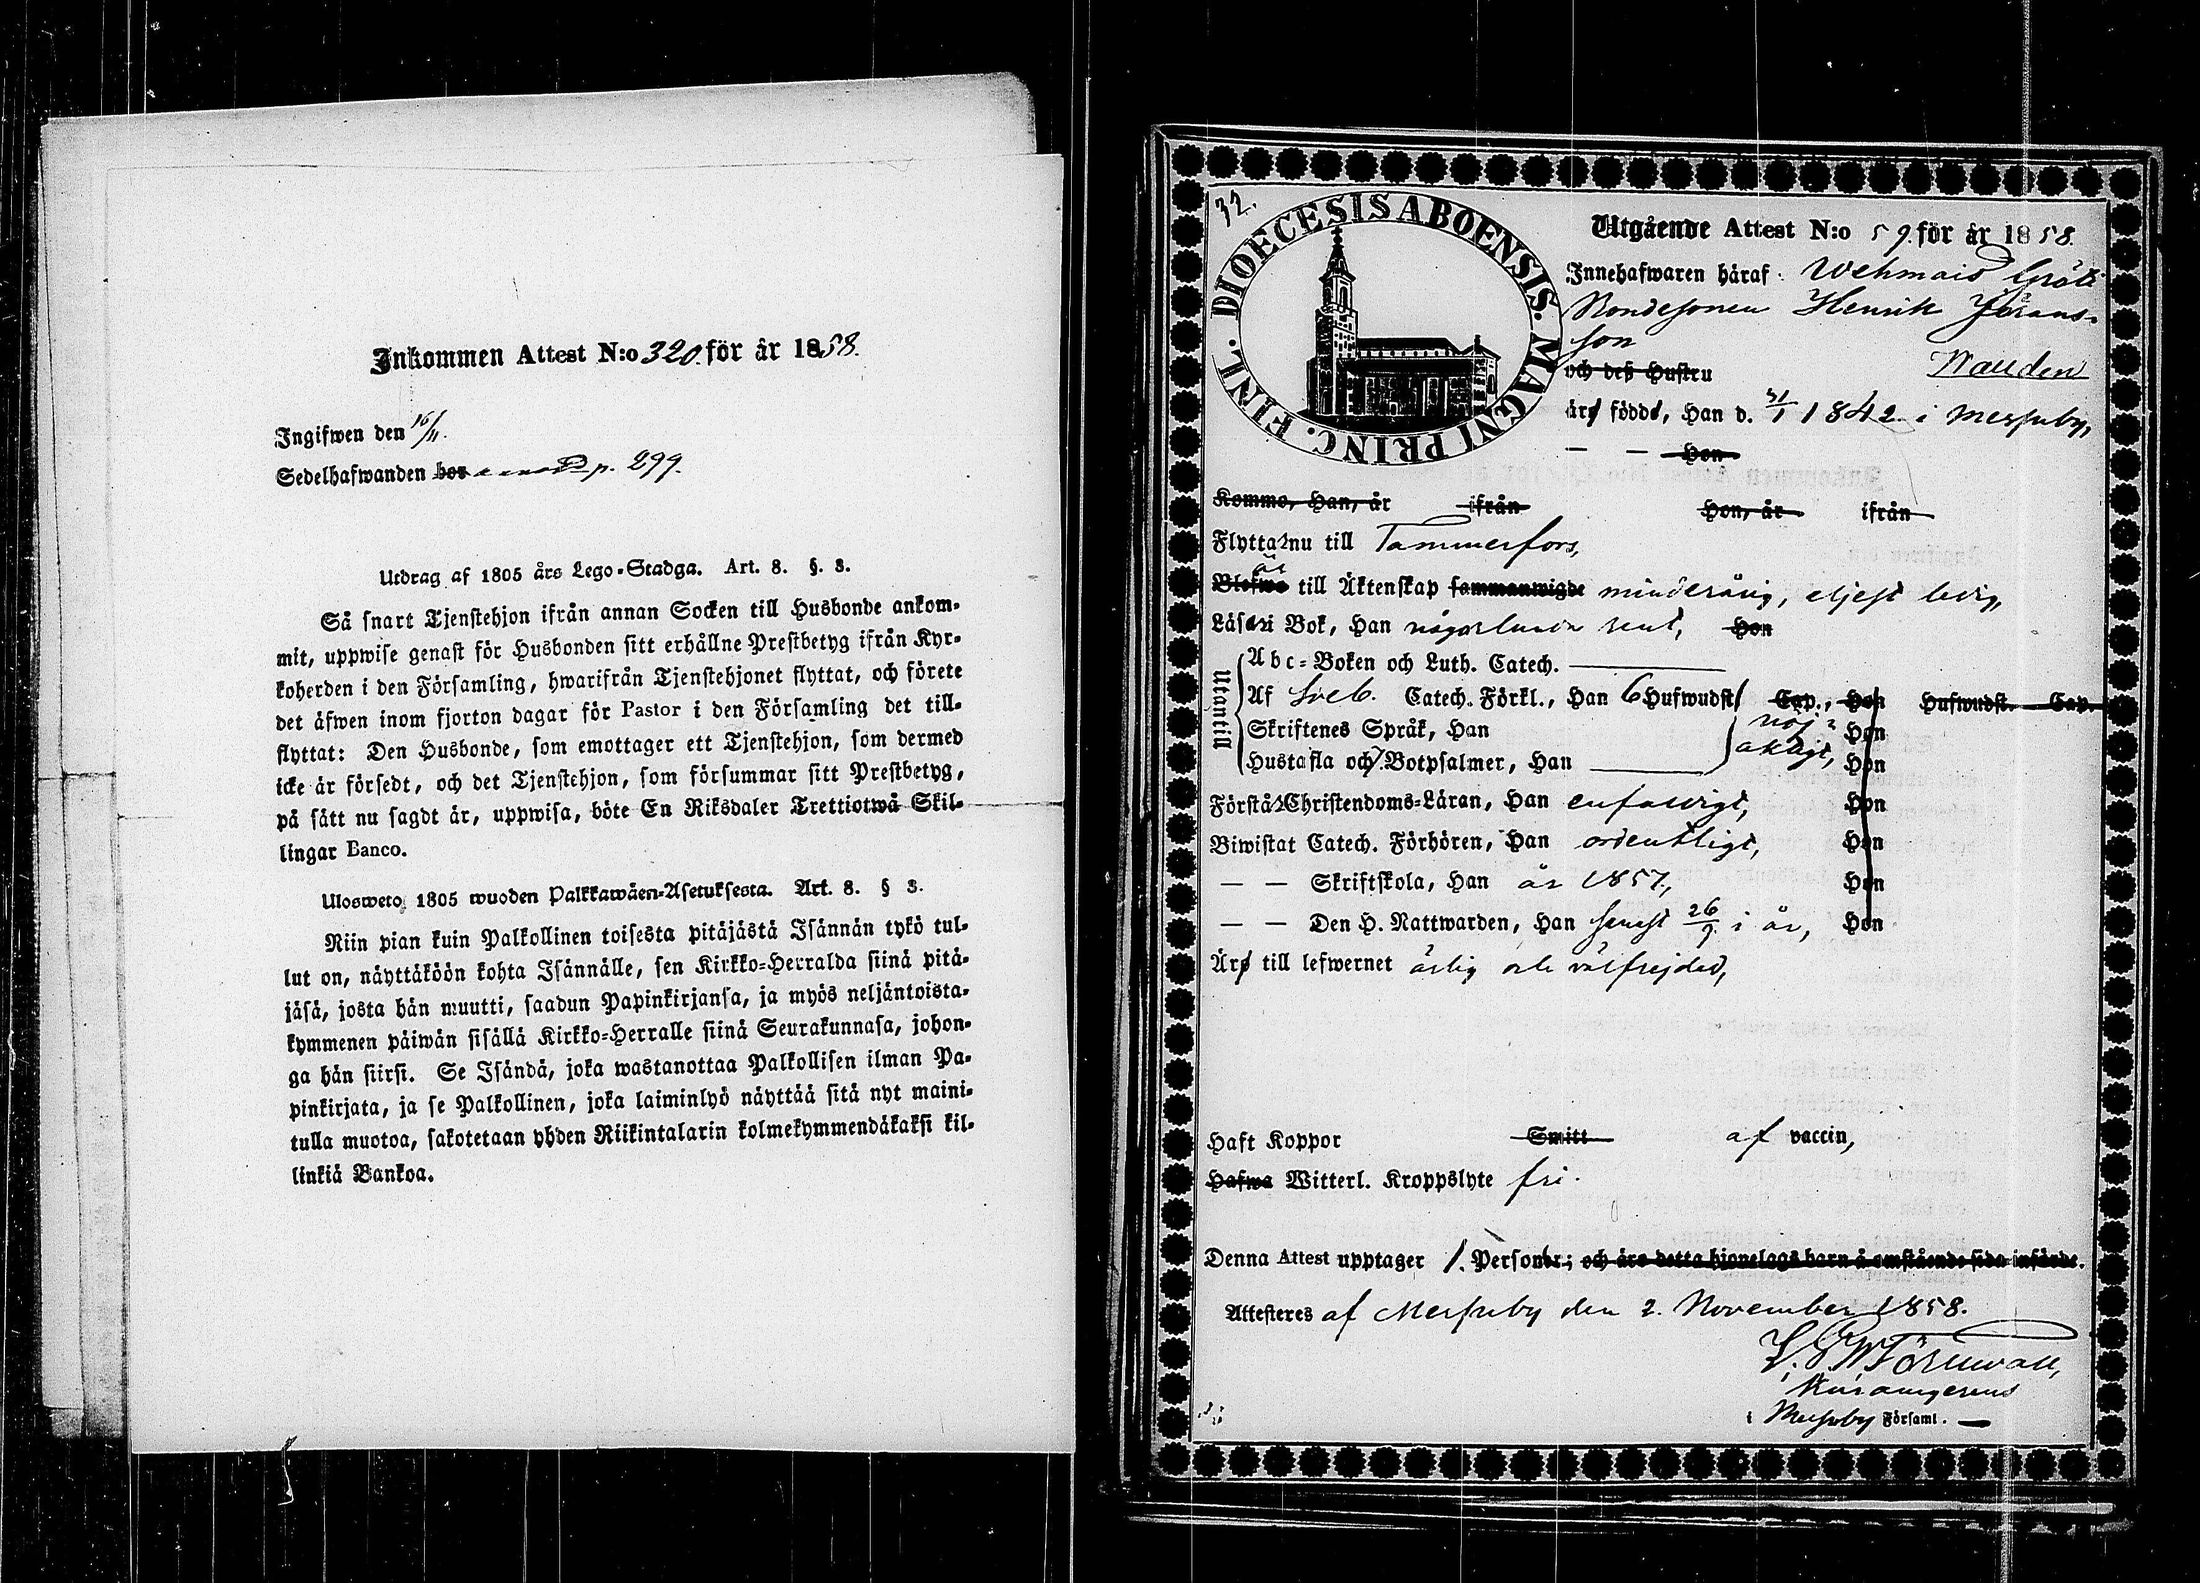 Inkommen Attest N:o 320. för år 1858.
Ingifwen den 16/11.
Sedelhafwanden bor p. 299.
Utdrag af 1805 års Lego-Stadga. Art. 8. §. 3.
Så snart Tjenstehjon ifrån annan Socken till Husbonde ankom-
mit, uppwise genast för Husbonden sitt erhållne Prestbetyg ifrån Kyr-
koherden i den Församling, hwarifrån Tjenstehjonet flyttat, och förete
det äfwen inom fjorton dagar för Pastor i den Församling det till-
flyttat: Den Husbonde, som emottager ett Tjenstehjon, som dermed
icke är försedt, och det Tjenstehjon, som försummar sitt Prestbetyg,
på sätt nu sagdt är, uppwisa, böte En Riksdaler Trettiotwå Skil-
lingar Banco.
Ulosweto 1805 wuoden Palkkawäen-Asetuksesta. Art. 8. § 3.
Niin pian kuin Palkollinen toisesta pitäjästä Isännän tykö tul-
lut on, näyttäköön kohta Isännälle, sen Kirkko-Herralda siinä pitä-
jäsä, josta hän muutti, saadun Papinkirjansa, ja myös neljäntoista-
kymmenen päiwän sisällä Kirkko-Herralle siinä Seurakunnasa, johon-
ga hän siirsi. Se Isändä, joka wastanottaa Palkollisen ilman Pa-
pinkirjata, ja se Palkollinen, joka laiminlyö näyttää sitä nyt maini-
tulla muotoa, sakotetaan yhden Riikintalarin kolmekymmendäkaksi kil-
linkiä Bankoa.
32.
DIOECESIS ABOENSIS. MAGNI PRINC. FINL.
Utgående Attest N:o 59. för år 1858.
Innehafwaren häraf: Wehmais Gröti
Bondesonen Henrik Jörans-
son
och deß Hustru Wallden
äro födde, Han d. 31/1 1842 i Messuby,
— — Hon
Kommo, Han, år ifrån Hon, år ifrån
Flytta nu till Tammerfors,
är
Blefwo till Äktenskap sammanwigde minderårig, eljest ledig,
Läser i Bok, Han någorlunda rent, Hon
Utantill
Abc-Boken och Luth. Catech.
Af Sveb. Catech. Förkl., Han 6 Hufwudst. Cap., Hon Hufwudst. Cap.
Skriftenes Språk, Han nöj- Hon
Hustafla och Botpsalmer, Han aktigt, Hon
Förstår Christendoms-Läran, Han enfaldigt, Hon
Biwistat Catech. Förhören, Han ordentligt, Hon
— — Skriftskola, Han år 1857, Hon
— — Den H. Nattwarden, Han senast 26/9 i år, Hon
Äro till lefwernet ärlig och välfrejdad,
Haft Koppor Smitt af vaccin,
Hafwa Witterl. Kroppslyte fri.
Denna Attest upptager 1. Personer; och äro detta hjonelags barn å omstående sida införde.
Attesteres af Messuby den 2. November 1858.
Törnwall,
i Messuby Församl.